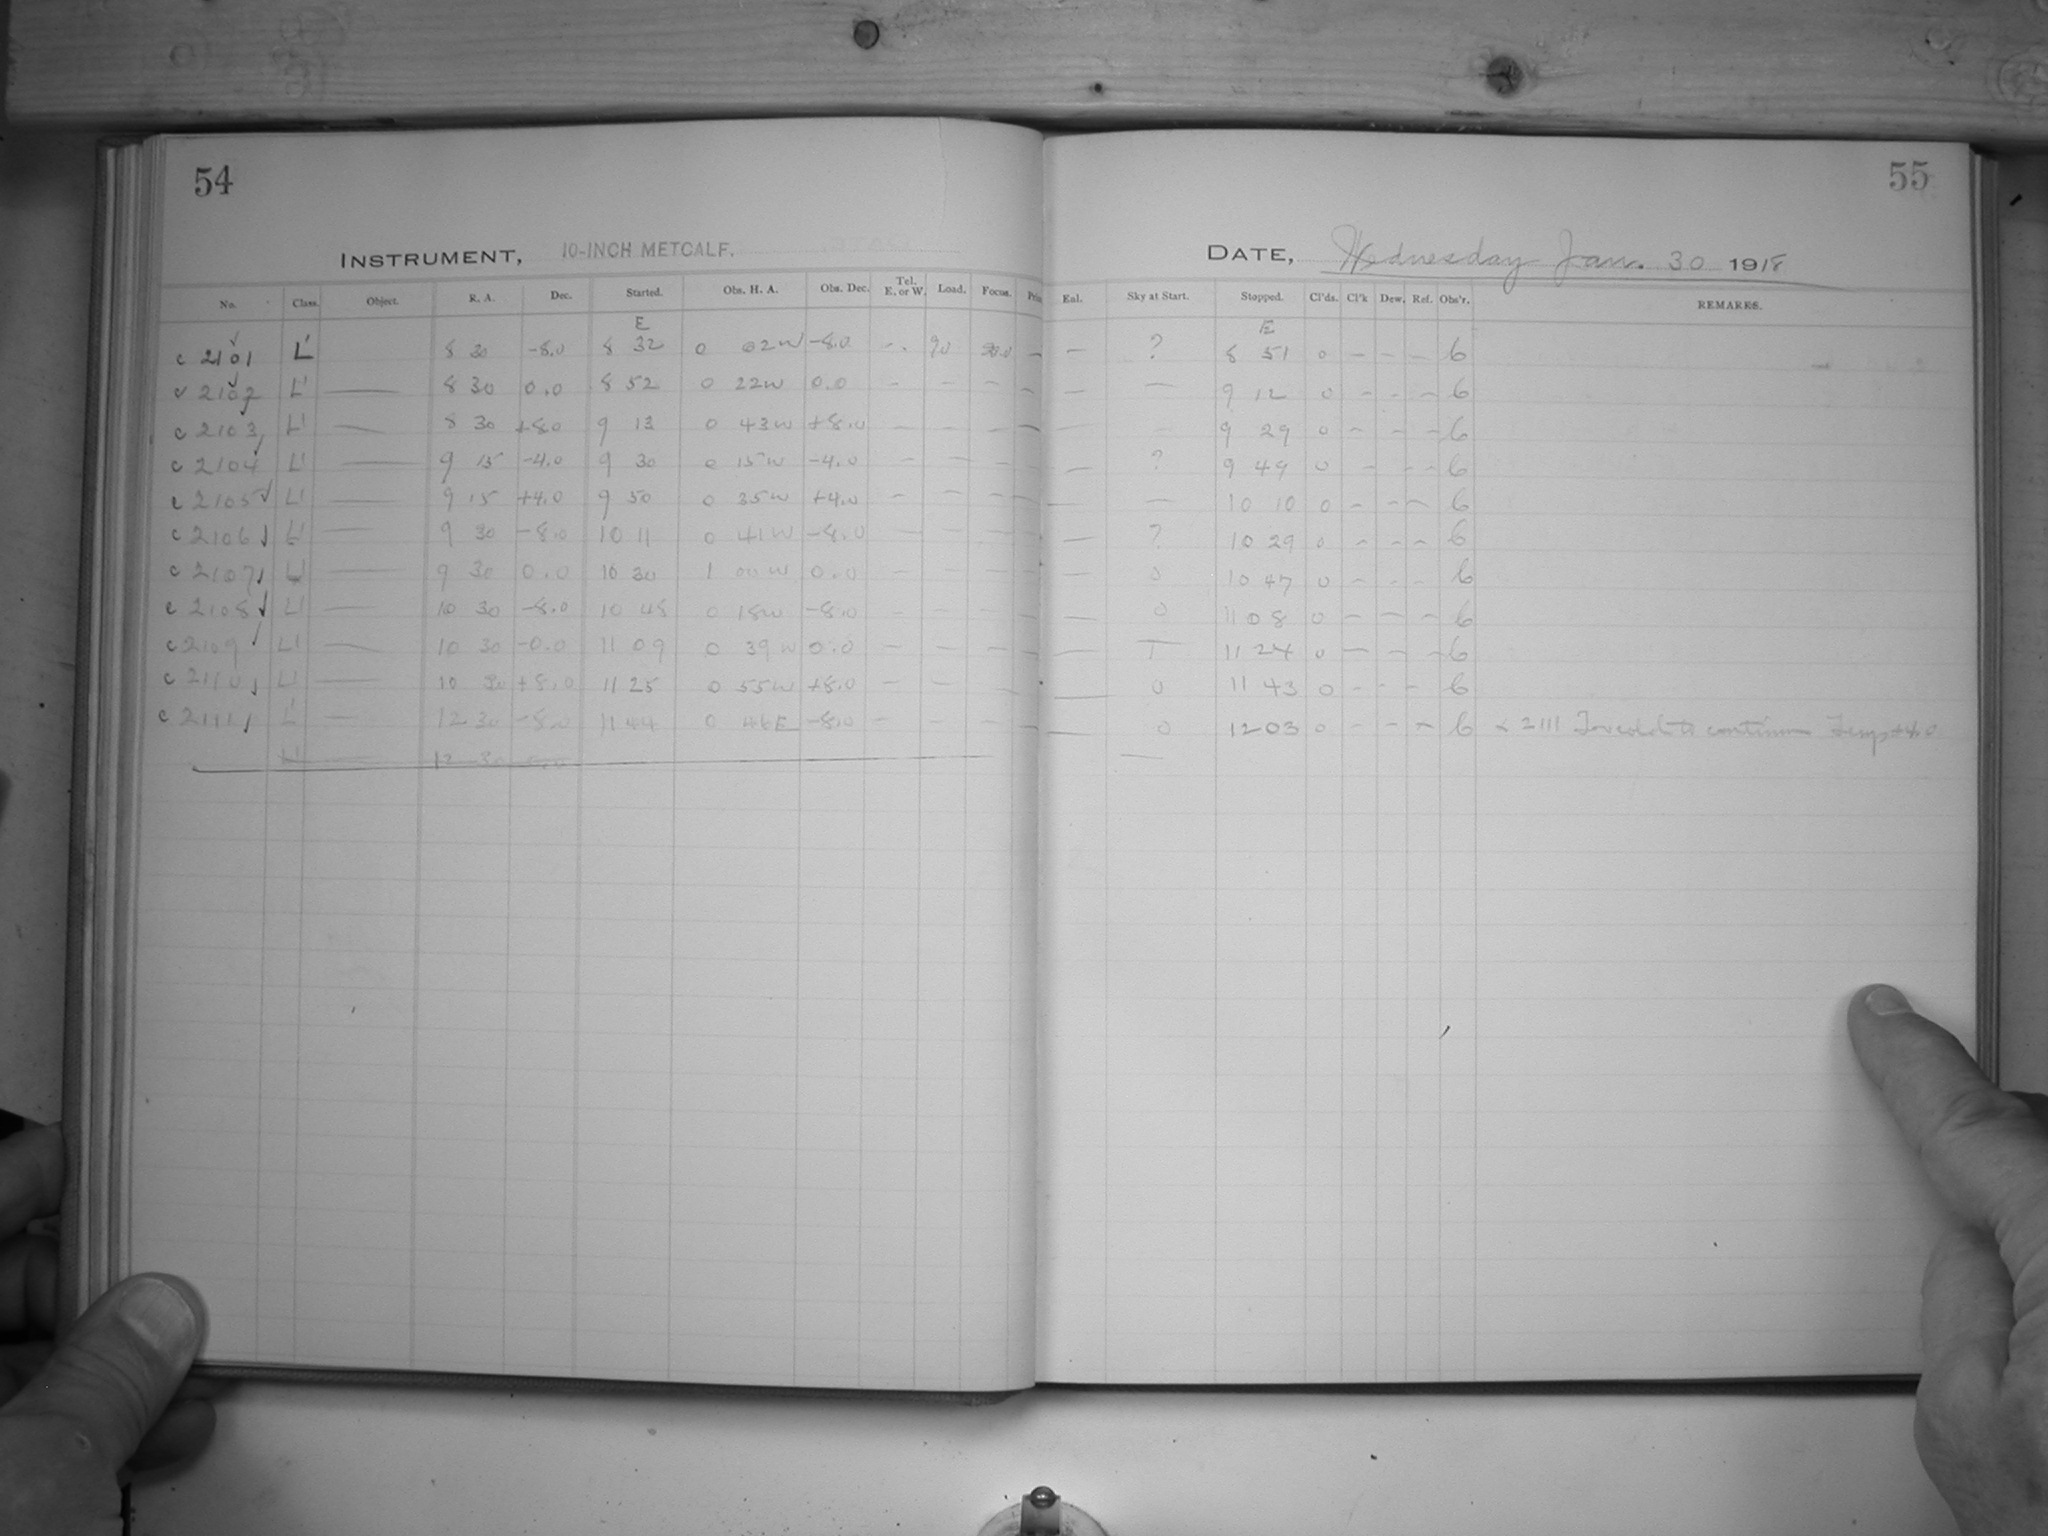 54
55
INSTRUMENT, 10-INCH METCALF.
DATE, Wednesday Jan. 30 1918
No. Class. Object. R. A. Dec. Started. Obs. H. A. Obs. Dec. Tel. E. or W. Load. Focus. Eal. Sky at Start. Stopped. Cl'ds. Cl'k Dew. Ref. Obs'r. REMARKS.
E E
c 2101 L' 8 30 -8.0 8 32 0 02W -8.0 - 90 — ? 8 51 0 - - - 6
c 2102 L' — 8 30 0.0 8 52 0 22W 0.0 - - - - — — 9 12 0 - - - 6
c 2103 L' — 8 30 +8.0 9 13 0 43W +8.0 - - - - — — 9 29 0 - - - 6
c 2104 L' — 9 15 -4.0 9 30 0 15W -4.0 - - - - — ? 9 49 0 - - - 6
c 2105 L' — 9 15 +4.0 9 50 0 35W +4.0 - - - - — — 10 10 0 - - - 6
c 2106 L' — 9 30 -8.0 10 11 0 41W -8.0 - - - - — ? 10 29 0 - - - 6
c 2107 L' — 9 30 0.0 10 30 1 00W 0.0 - - - - — 0 10 47 0 - - - 6
c 2108 L' — 10 30 -8.0 10 48 0 18W -8.0 - - - - — 0 11 08 0 - - - 6
c 2109 L' — 10 30 -0.0 11 09 0 39W 0.0 - - - - — 11 24 0 - - - 6
c 2110 L' — 10 30 +8.0 11 25 0 55W +8.0 - - - - — 0 11 43 0 - - - 6
c 2111 L' — 12 30 -8.0 11 44 0 46E -8.0 - - - - — 0 12 03 0 - - - 6 c 2111 Too cold to continue Temp +4.0
L' — 12 30 —